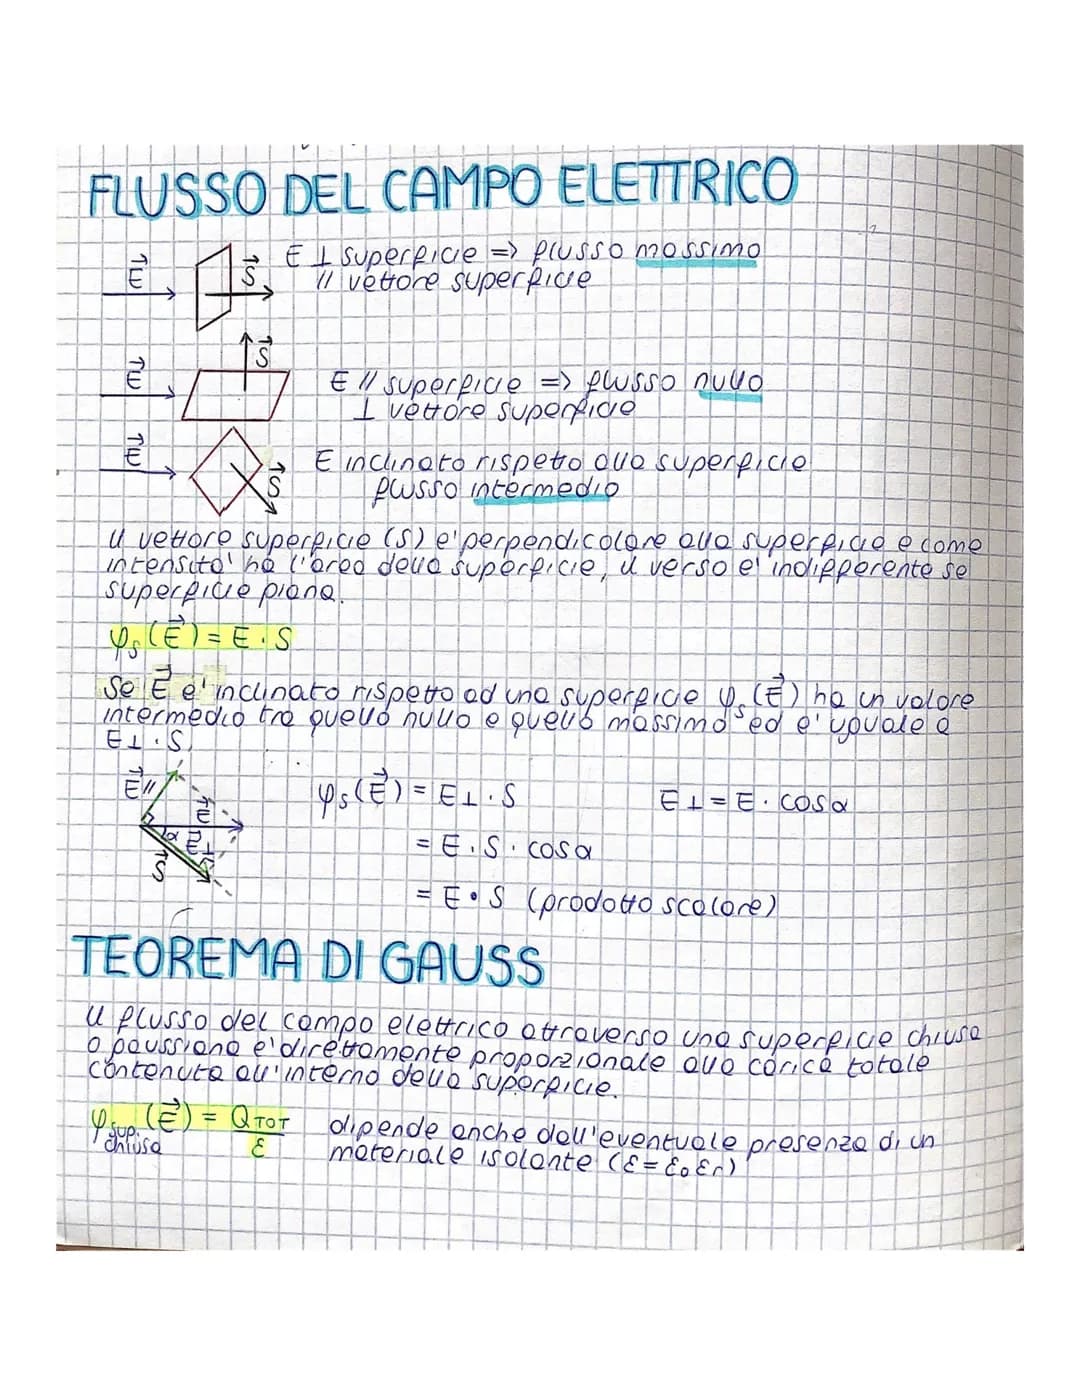 FLUSSO DEL CAMPO ELETTRICO
E⃗ S⃗ E ⊥ superficie => flusso massimo
// vettore superficie
S⃗
E⃗ E // superficie => flusso nullo
⊥ vettore superficie
E⃗ S⃗ E inclinato rispetto alla superficie
flusso intermedio
Il vettore superficie (S) e' perpendicolare alla superficie e come
intensita' ha l'area della superficie, il verso e' indifferente se
superficie piana.
φs(E⃗) = E · S
Se E⃗ e' inclinato rispetto ad una superficie φs(E⃗) ha un valore
intermedio tra quello nullo e quello massimo ed e' uguale a
E⊥ · S.
E⃗// E⃗ α E⃗⊥ S⃗
φs(E⃗) = E⊥ · S E⊥ = E · cosα
= E · S · cosα
= E • S (prodotto scalare)
TEOREMA DI GAUSS
Il flusso del campo elettrico attraverso una superficie chiusa
o gaussiana e' direttamente proporzionale alla carica totale
contenuta all'interno della superficie.
φsup. chiusa (E⃗) = QTOT / ε dipende anche dall'eventuale presenza di un
materiale isolante (ε = ε₀εr)